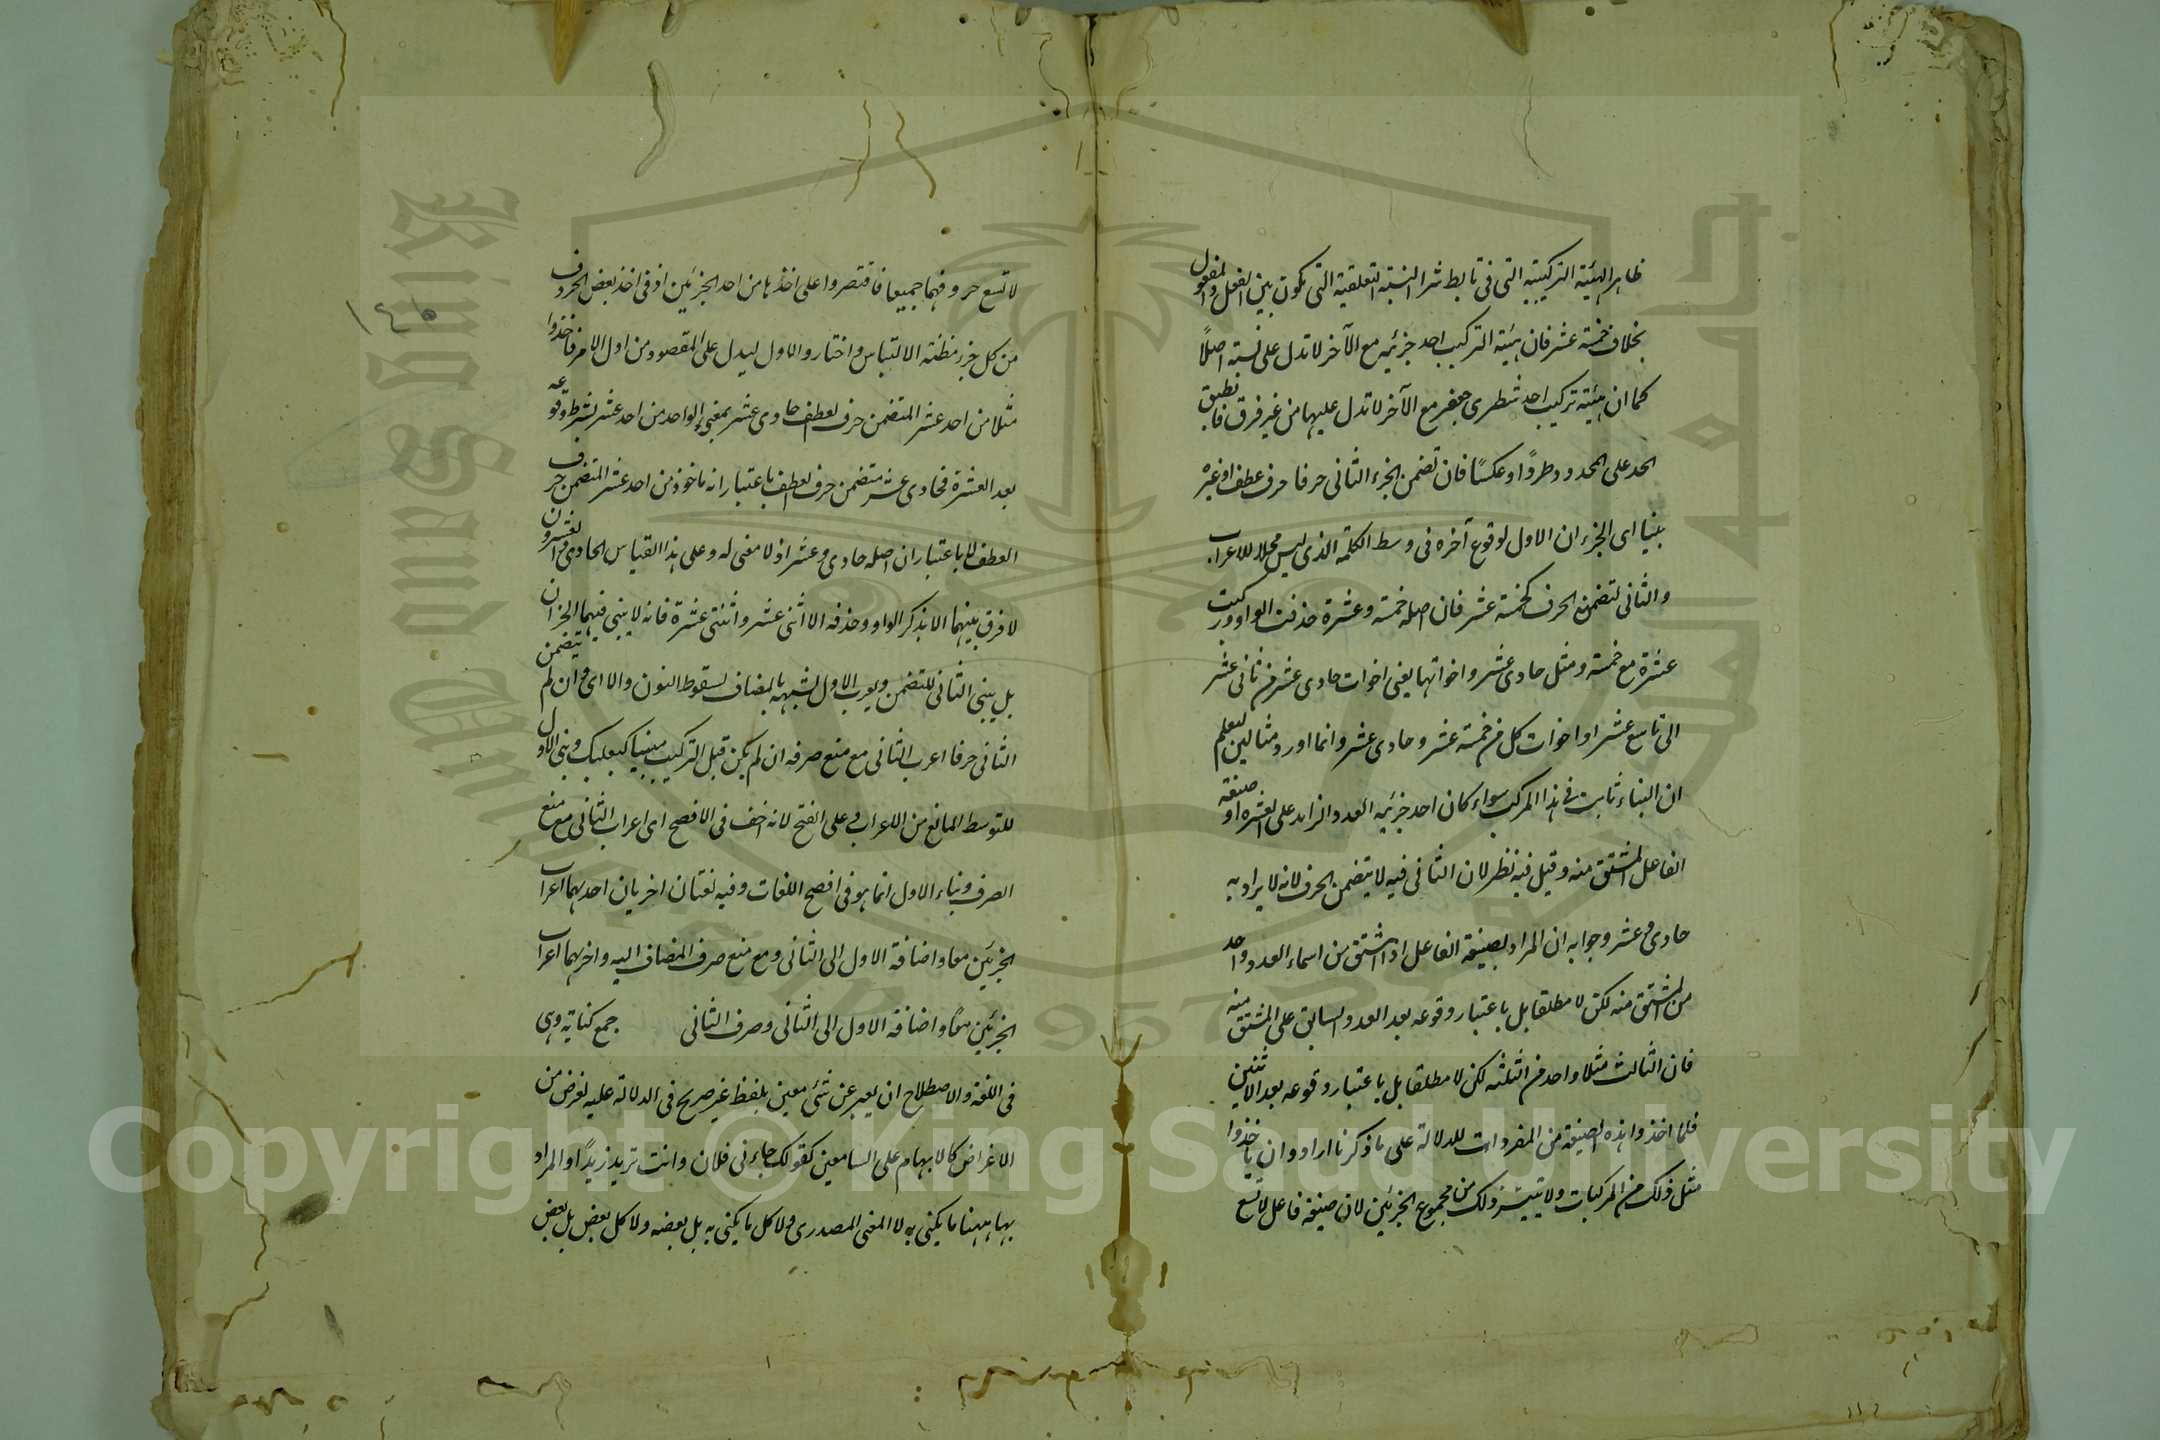 ظاهر الهيئة التركيبية التي في تابط شرا النسبة التعلقية التي تكون بين الفعل والمفعول
بخلاف خمسة عشر فان هيئة التركيب احد جزئيه مع الآخر لا تدل على نسبة اصلاً
كما ان هيئة تركيب احد شطرى جعفر مع الآخر لا تدل عليها من غير فرق فانطبق
الحد على المحدود طردًا وعكسًا فان تضمن الجزء الثانى حرفا حرف عطف او غيره
بنيا اى الجزءان الاول لوقوع آخره فى وسط الكلمة الذى ليس محلا للاعراب
والثانى لتضمنه الحرف كخمسة عشر فان اصله خمسة وعشرة حذفت الواو وركبت
عشرة مع خمسة ومثل حادى عشر واخواتها يعنى اخوات حادى عشر من ثانى عشر
الى تاسع عشر او اخوات كل من خمسة عشر وحادى عشر وانما اورد مثالين ليعلم
ان البناء ثابت فى هذا المركب سواء كان احد جزئيه العدد الزايد على العشرة او صيغة
الفاعل المشتق منه وقيل فيه نظر لان الثانى فيه لا يتضمن الحرف لانه لا يراد به
حادى وعشر وجوابه ان المراد بصيغة الفاعل اذا اشتق من اسماء العدد واحد
من المشتق منه لكن لا مطلقا بل باعتبار وقوعه بعد العدد السابق على المشتق منه
فان الثالث مثلا واحد من الثلثة لكن لا مطلقا بل باعتبار وقوعه بعد الاثنين
فلما اخذوا هذه الصيغة من المفردات للدلالة على ما ذكرنا ارادوا ان ياخذوا
مثل ذلك من المركبات ولا يتيسر ذلك من مجموع الجزئين لان صيغة فاعل لا تسع
لا تسع حروفهما جميعا فاقتصروا على اخذها من احد الجزئين اذ فى اخذ بعض الحروف
من كل جزء مظنة الالتباس واختاروا الاول ليدل على المقصود من اول الامر فاخذوا
مثلا من احد عشر المتضمن حرف العطف حادى عشر بمعنى الواحد من احد عشر بشرط وقوعه
بعد العشرة فحادى عشر متضمن حرف العطف باعتبار انه ماخوذ من احد عشر المتضمن حرف
العطف لا باعتبار ان اصله حادى وعشر اذ لا معنى له وعلى هذا القياس الحادى والعشرون
لا فرق بينهما الا بذكر الواو وحذفه الا اثنى عشر واثنتى عشرة فانه لا يبنى فيهما الجزءان
بل يبنى الثانى للتضمن ويعرب الاول لشبهه بالمضاف لسقوط النون والا اى وان لم يتضمن
الثانى حرفا اعرب الثانى مع منع صرفه ان لم يكن قبل التركيب مبنيا كبعلبك وبنى الاول
للتوسط المانع من الاعراب على الفتح لانه اخف فى الافصح اى اعراب الثانى مع منع
الصرف وبناء الاول انما هو فى افصح اللغات وفيه لغتان اخريان احديهما اعراب
الجزئين معا واضافة الاول الى الثانى ومع منع صرف المضاف اليه واخرهما اعراب
الجزئين معًا واضافة الاول الى الثانى وصرف الثانى جمع كناية وهى
فى اللغة والاصطلاح ان يعبر عن شئ معين بلفظ غير صريح فى الدلالة عليه لغرض من
الاغراض كالابهام على السامعين كقولك جاءنى فلان وانت تريد زيدًا والمراد
بها ههنا ما يكنى به لا المعنى المصدرى ولا كل ما يكنى به بل بعضه ولا كل بعض بل بعض
١٤٥
King Saud University
1957
Copyright © King Saud University